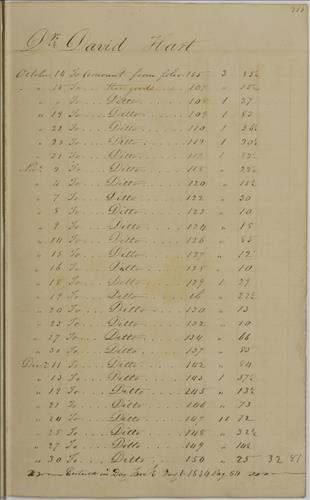 Dr David Hart
October 14 To Amount from folio 155 3 85½
" 15 To .... the goods .... 107 " 15½
" " To .... Ditto .... 108 1 37
" 19 To .... Ditto .... 109 1 83
" 22 To .... Ditto .... 110 1
" 23 To .... Ditto .... 112 1 30½
" 31 To .... Ditto .... 117 1
Nov 2 To .... Ditto .... 118 " 22½
" 4 To .... Ditto .... 120 "
" 7 To .... Ditto .... 122 " 30
" 8 To .... Ditto .... 123 " 10
" 9 To .... Ditto .... 124 " 15
" 14 To .... Ditto .... 126 " 85
" 15 To .... Ditto .... 127 " 12
" 16 To .... Ditto .... 128 " 10
" 18 To .... Ditto .... 129 1 29
" 19 To .... Ditto .... ib " 22½
" 20 To .... Ditto .... 130 " 13
" 23 To .... Ditto .... 132 " 10
" 27 To .... Ditto .... 134 " 66
" 30 To .... Ditto .... 137 " 83
Decr 11 To .... Ditto .... 142 " 84
" 13 To .... Ditto .... 143 1 37½
" 17 To .... Ditto .... 145 " 13½
" 21 To .... Ditto .... 146 " 75
" 24 To .... Ditto .... 147 11 72
" 25 To .... Ditto .... 148 " 32½
" 27 To .... Ditto .... 149 " 14½
" 30 To .... Ditto .... 150 " 25 32 81
Entered in Day Book 1834 Pag 84